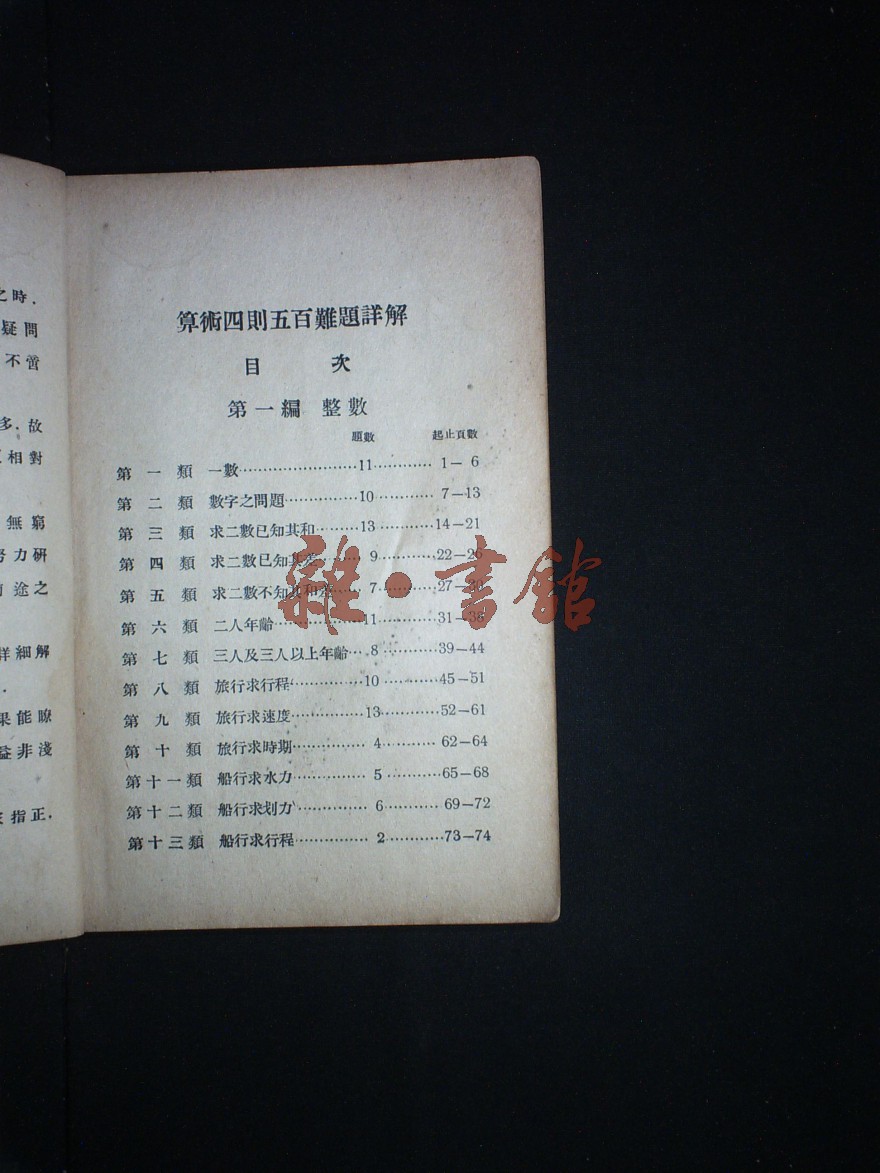 之時.
疑問
不啻
多.故
相對
無窮
努力研
途之
詳細解
果能瞭
益非淺
指正.
算術四則五百難題詳解
目 次
第一編 整數
題數 起止頁數
第一類 一數……………………11…………1—6
第二類 數字之問題……………10…………7—13
第三類 求二數已知其和………13…………14—21
第四類 求二數已知其差……9…………22—26
第五類 求二數不知其和差……7…………27—30
第六類 二人年齡………………11…………31—38
第七類 三人及三人以上年齡…8…………39—44
第八類 旅行求行程……………10…………45—51
第九類 旅行求速度……………13…………52—61
第十類 旅行求時期……………4…………62—64
第十一類 船行求水力……………5…………65—68
第十二類 船行求划力……………6…………69—72
第十三類 船行求行程……………2…………73—74
雜·書館